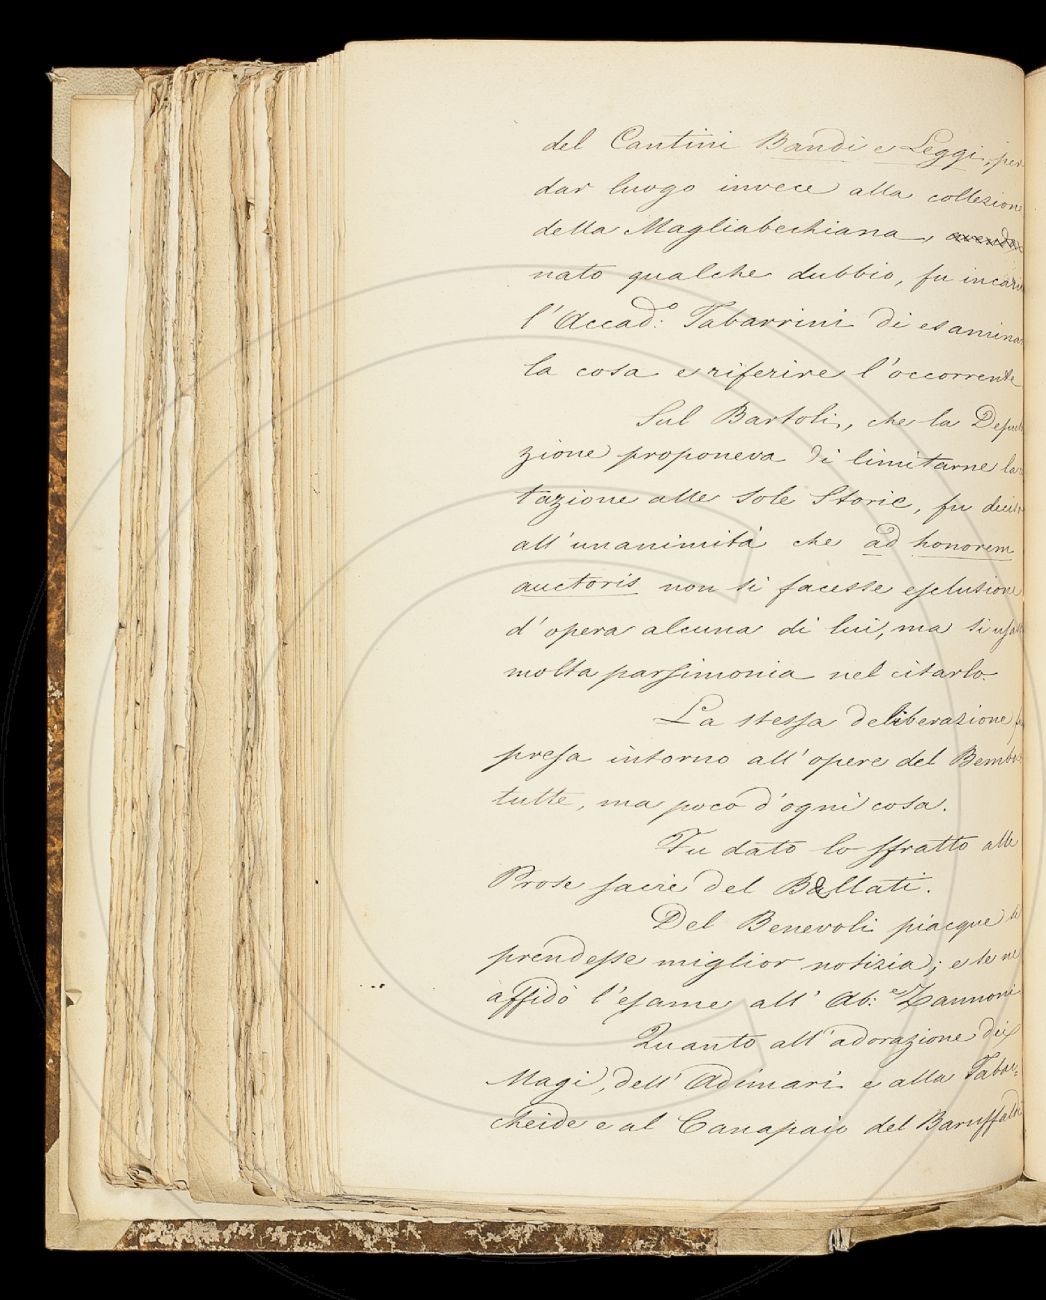 del Cantini Bandi e Leggi, per
dar luogo invece alla collezione
della Magliabechiana,
nato qualche dubbio, fu incari
l'Accad:o Tabarrini di esaminar
la cosa e riferire l'occorrente
Sul Bartoli, che la Deputa
zione proponeva di limitarne la ci
tazione alle sole Storie, fu deciso
all'unanimità che ad honorem
auctoris non si facesse esclusione
d'opera alcuna di lui, ma si usasse
molta parsimonia nel citarlo.
La stessa deliberazione fu
presa intorno all'opere del Bembo
tutte, ma poco d'ogni cosa.
Fu dato lo sfratto alle
Prose sacre del Ballati.
Del Benevoli piacque si
prendesse miglior notizia; e se ne
affidò l'esame all' Ab:e Zannoni
Quanto all'adorazione dei
Magi, dell' Adimari e alla Tabac=
cheide e al Canapaio del Baruffaldi